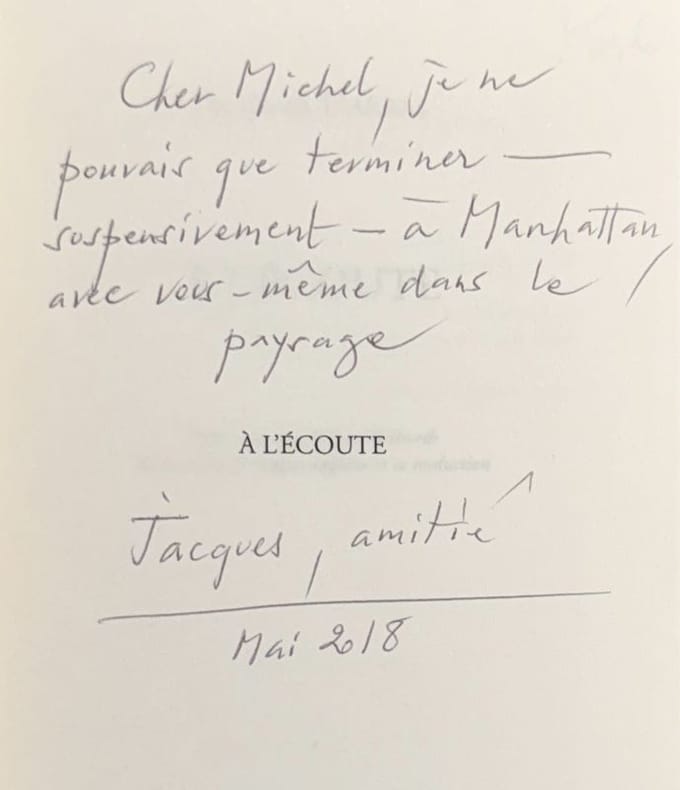 Cher Michel, je ne
pouvais que terminer —
suspensivement — à Manhattan,
avec vous-même dans le
paysage
À L'ÉCOUTE
Jacques, amitié
Mai 2018